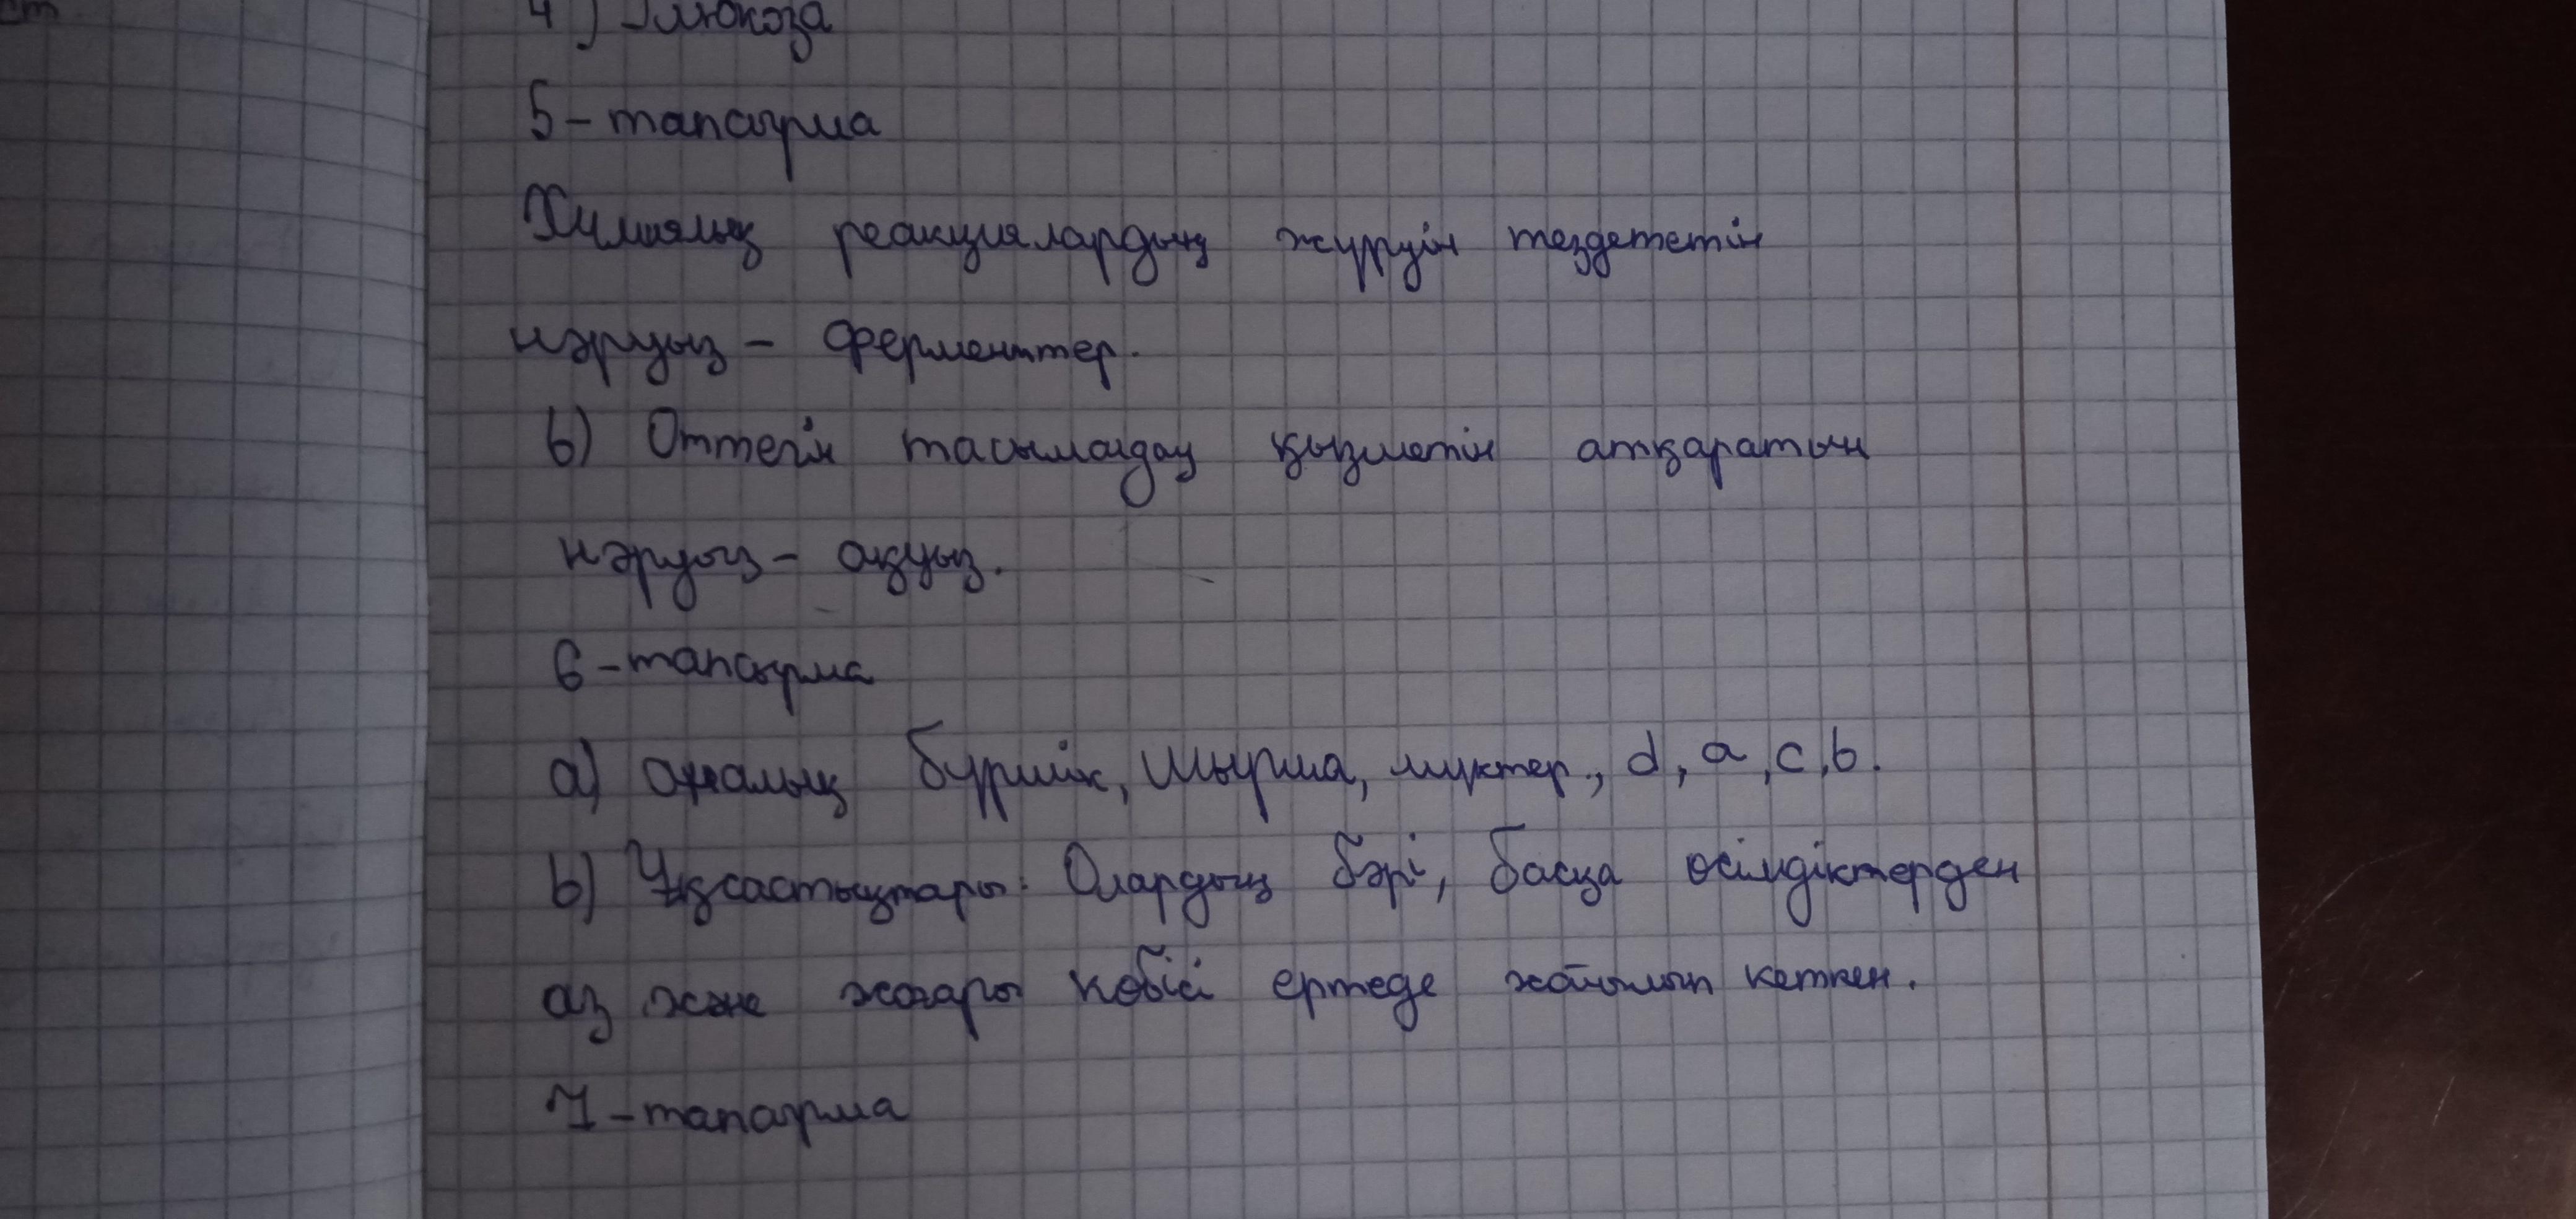 4) Глюкоза
5-тапсырма
Химиялық реакциялардың жүруін тездететін
нәруыз - ферменттер.
b) Оттегін тасымалдау қызметін атқаратын
нәруыз - ақуыз.
6-тапсырма
a) аналық бүршік, шырша, мүктер., d, a, c, b.
b) Ұқсастықтары: Олардың бәрі, басқа өсімдіктерден
аз және жоғары көбісі ертеде жойылып кеткен.
7-тапсырма